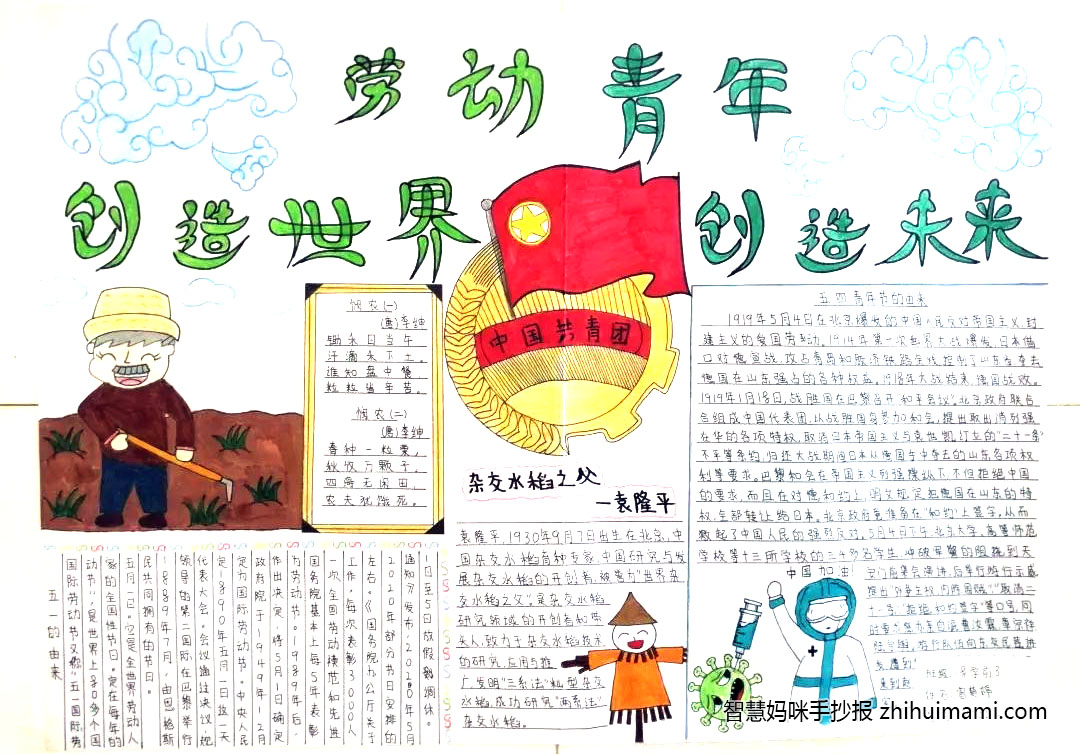 劳动青年
创造世界
创造未来
悯农(一)
(唐)李绅
锄禾日当午
汗滴禾下土。
谁知盘中餐
粒粒皆辛苦。
悯农(二)
(唐)李绅
春种一粒粟，
秋收万颗子。
四海无闲田，
农夫犹饿死。
中国共青团
杂交水稻之父
—袁隆平
袁隆平，1930年9月7日出生在北京，中
国杂交水稻育种专家，中国研究与发
展杂交水稻的开创者，被誉为"世界杂
交水稻之父"。是杂交水稻
研究领域的开创者和带
头人，致力于杂交水稻技术
的研究、应用与推
广发明"三系法"籼型杂交
水稻，成功研究"两系法"
杂交水稻。
五四青年节的由来
1919年5月4日在北京爆发的中国人民反对帝国主义、封
建主义的爱国劳动。1914年第一次世界大战爆发，日本借
口对德宣战，攻占青岛和胶济铁路全线控制了山东夺去
德国在山东强占的各种权益。1918年大战结束，德国战败。
1919年1月18日，战胜国在巴黎召开"和平会议"。北京政府联合
合组成中国代表团，从战胜国身势力和会，提出取出湾列强
在华的各项特权，取消日本帝国主义与袁世凯订立的"二十一条"
不平等条约，归还大战期间日本从德国手中夺去的山东各项权
利等要求。巴黎和会在帝国主义列强操纵下，不但拒绝中国
的要求，而且在对德和约上，明文规定把德国在山东的特
权，全部转让给日本。北京政府竟准备在"和约"上签字，从而
激起了中国人民的强烈反对。5月4日下午，北京大学、高等师范
学校等十三所学校的三千多名学生，冲破军警的阻挠到天
安门前集会演讲，后举行游行示威
提出"外争主权，内除国贼""取消二
十一条""拒绝和约签字"等口号，同
中国加油!
五一的由来
国际劳动节又称"五一国际劳
动节"，是世界上80多个国
家的全国性节日。定在每年的
五月一日。它是全世界劳动人
民共同拥有的节日。
1889年7月，由恩格斯
领导的第二国际在巴黎举行
代表大会。会议通过决议，规
定1890年五月一日这一天
定为国际劳动节。中央人民
政府院于1949年12月
作出决定，将5月1日确定
为劳动节。1989年后，
国务院基本上每5年表彰
一次全国劳动模范和先进
工作，每次表彰3000人
左右。《国务院办公厅关于
2020年部分节日安排的
通知》发布，2020年5月
1日至5日放假调休。
智慧妈咪手抄报 zhihuimami.com